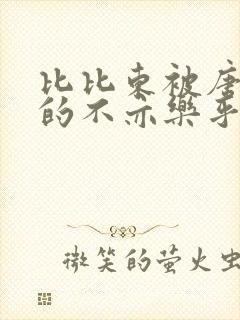 比比东被唐
的不亦乐乎
微笑的萤火虫